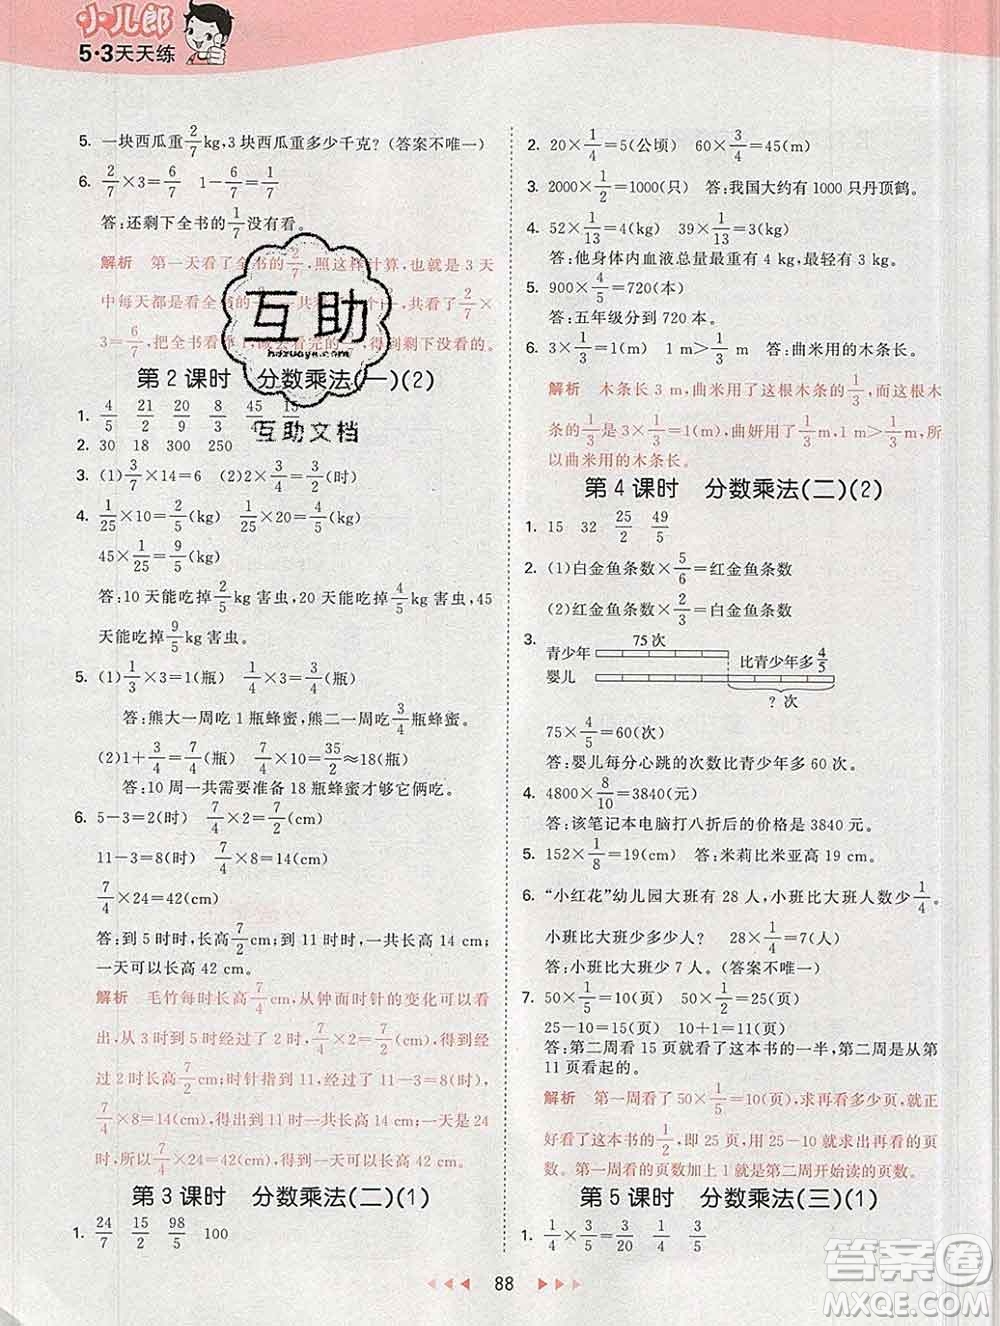 小儿郎
5·3天天练
5. 一块西瓜重2/7kg,3块西瓜重多少千克?(答案不唯一)
6. 2/7×3=6/7 1-6/7=1/7
答:还剩下全书的1/7没有看。
解析 第一天看了全书的2/7,照这样计算,也就是3天
中每天都是看全书的2/7,共看了2/7×
3=6/7,把全书看作1,减去看完的
互助
hdzuoye.com
互助文档
第2课时 分数乘法(一)(2)
1. 4/5 21/2 20/9 8/3 45/4 15
2. 30 18 300 250
3. (1)3/7×14=6 (2)2/3×3=2(时)
4. 1/25×10=2/5(kg) 1/25×20=4/5(kg)
45×1/25=9/5(kg)
答:10天能吃掉2/5kg害虫,20天能吃掉4/5kg害虫,45
天能吃掉9/5kg害虫。
5. (1)1/3×3=1(瓶) 1/4×3=3/4(瓶)
答:熊大一周吃1瓶蜂蜜,熊二一周吃3/4瓶蜂蜜。
(2)1+3/4=7/4(瓶) 7/4×10=35/2≈18(瓶)
答:10周一共需要准备18瓶蜂蜜才够它俩吃。
6. 5-3=2(时) 7/4×2=7/2(cm)
11-3=8(时) 7/4×8=14(cm)
7/4×24=42(cm)
答:到5时时,长高7/2cm;到11时时,一共长高14cm;
一天可以长高42cm。
解析 毛竹每时长高7/4cm,从钟面时针的变化可以看
出,从3时到5时经过了2时,7/4×2=7/2(cm),得到
经过2时长高7/2cm;时针从3到11,经过了8时,
7/4×8=14(cm),得出到11时一共长高14cm;一天是24
时,所以7/4×24=42(cm),得到一天可以长高42cm。
第3课时 分数乘法(二)(1)
1. 24/7 15/2 98/5 100
2. 20×1/4=5(公顷) 60×3/4=45(m)
3. 2000×1/2=1000(只) 答:我国大约有1000只丹顶鹤。
4. 52×1/13=4(kg) 39×1/13=3(kg)
答:他身体内血液总量最大可能是4kg。
5. 900×4/5=720(本)
答:五年级分到720本。
6. 3×1/3=1(m) 答:曲米用的木条长。
解析 木条长3m,曲米用了这根木条的1/3,这根木
条的1/3是3×1/3=1(m),曲妍用了1/3m,1m>1/3m,所
以曲米用的木条长。
第4课时 分数乘法(二)(2)
1. 15 32 25/2 49/5
2. (1)白金鱼条数×5/6=红金鱼条数
(2)红金鱼条数×2/3=白金鱼条数
3. 75次
青少年
比青少年多4/5
婴儿
?次
75×4/5=60(次)
答:婴儿每分心跳的次数比青少年多60次。
4. 4800×8/10=3840(元)
答:该笔记本电脑打八折后的价格是3840元。
5. 152×1/8=19(cm) 答:米莉比米亚高19cm。
6. “小红花”幼儿园大班有28人,小班比大班人数少1/4。
小班比大班少多少人? 28×1/4=7(人)
答:小班比大班少7人。(答案不唯一)
7. 50×1/5=10(页) 50×1/2=25(页)
25-10=15(页) 10+1=11(页)
答:第二周看15页就看了这本书的一半,第二周是从第
11页看起的。
解析 第一周看了50×1/5=10(页),求再看多少页,就正
好看了这本书的1/2,即25页,用25-10求出再看的页
数;第一周看的页数加上1就是第二周开始读的页数。
第5课时 分数乘法(三)(1)
1. 1/4×3/5=3/20 1/4×1/5=1/20
88
答案圈
MXQE.COM